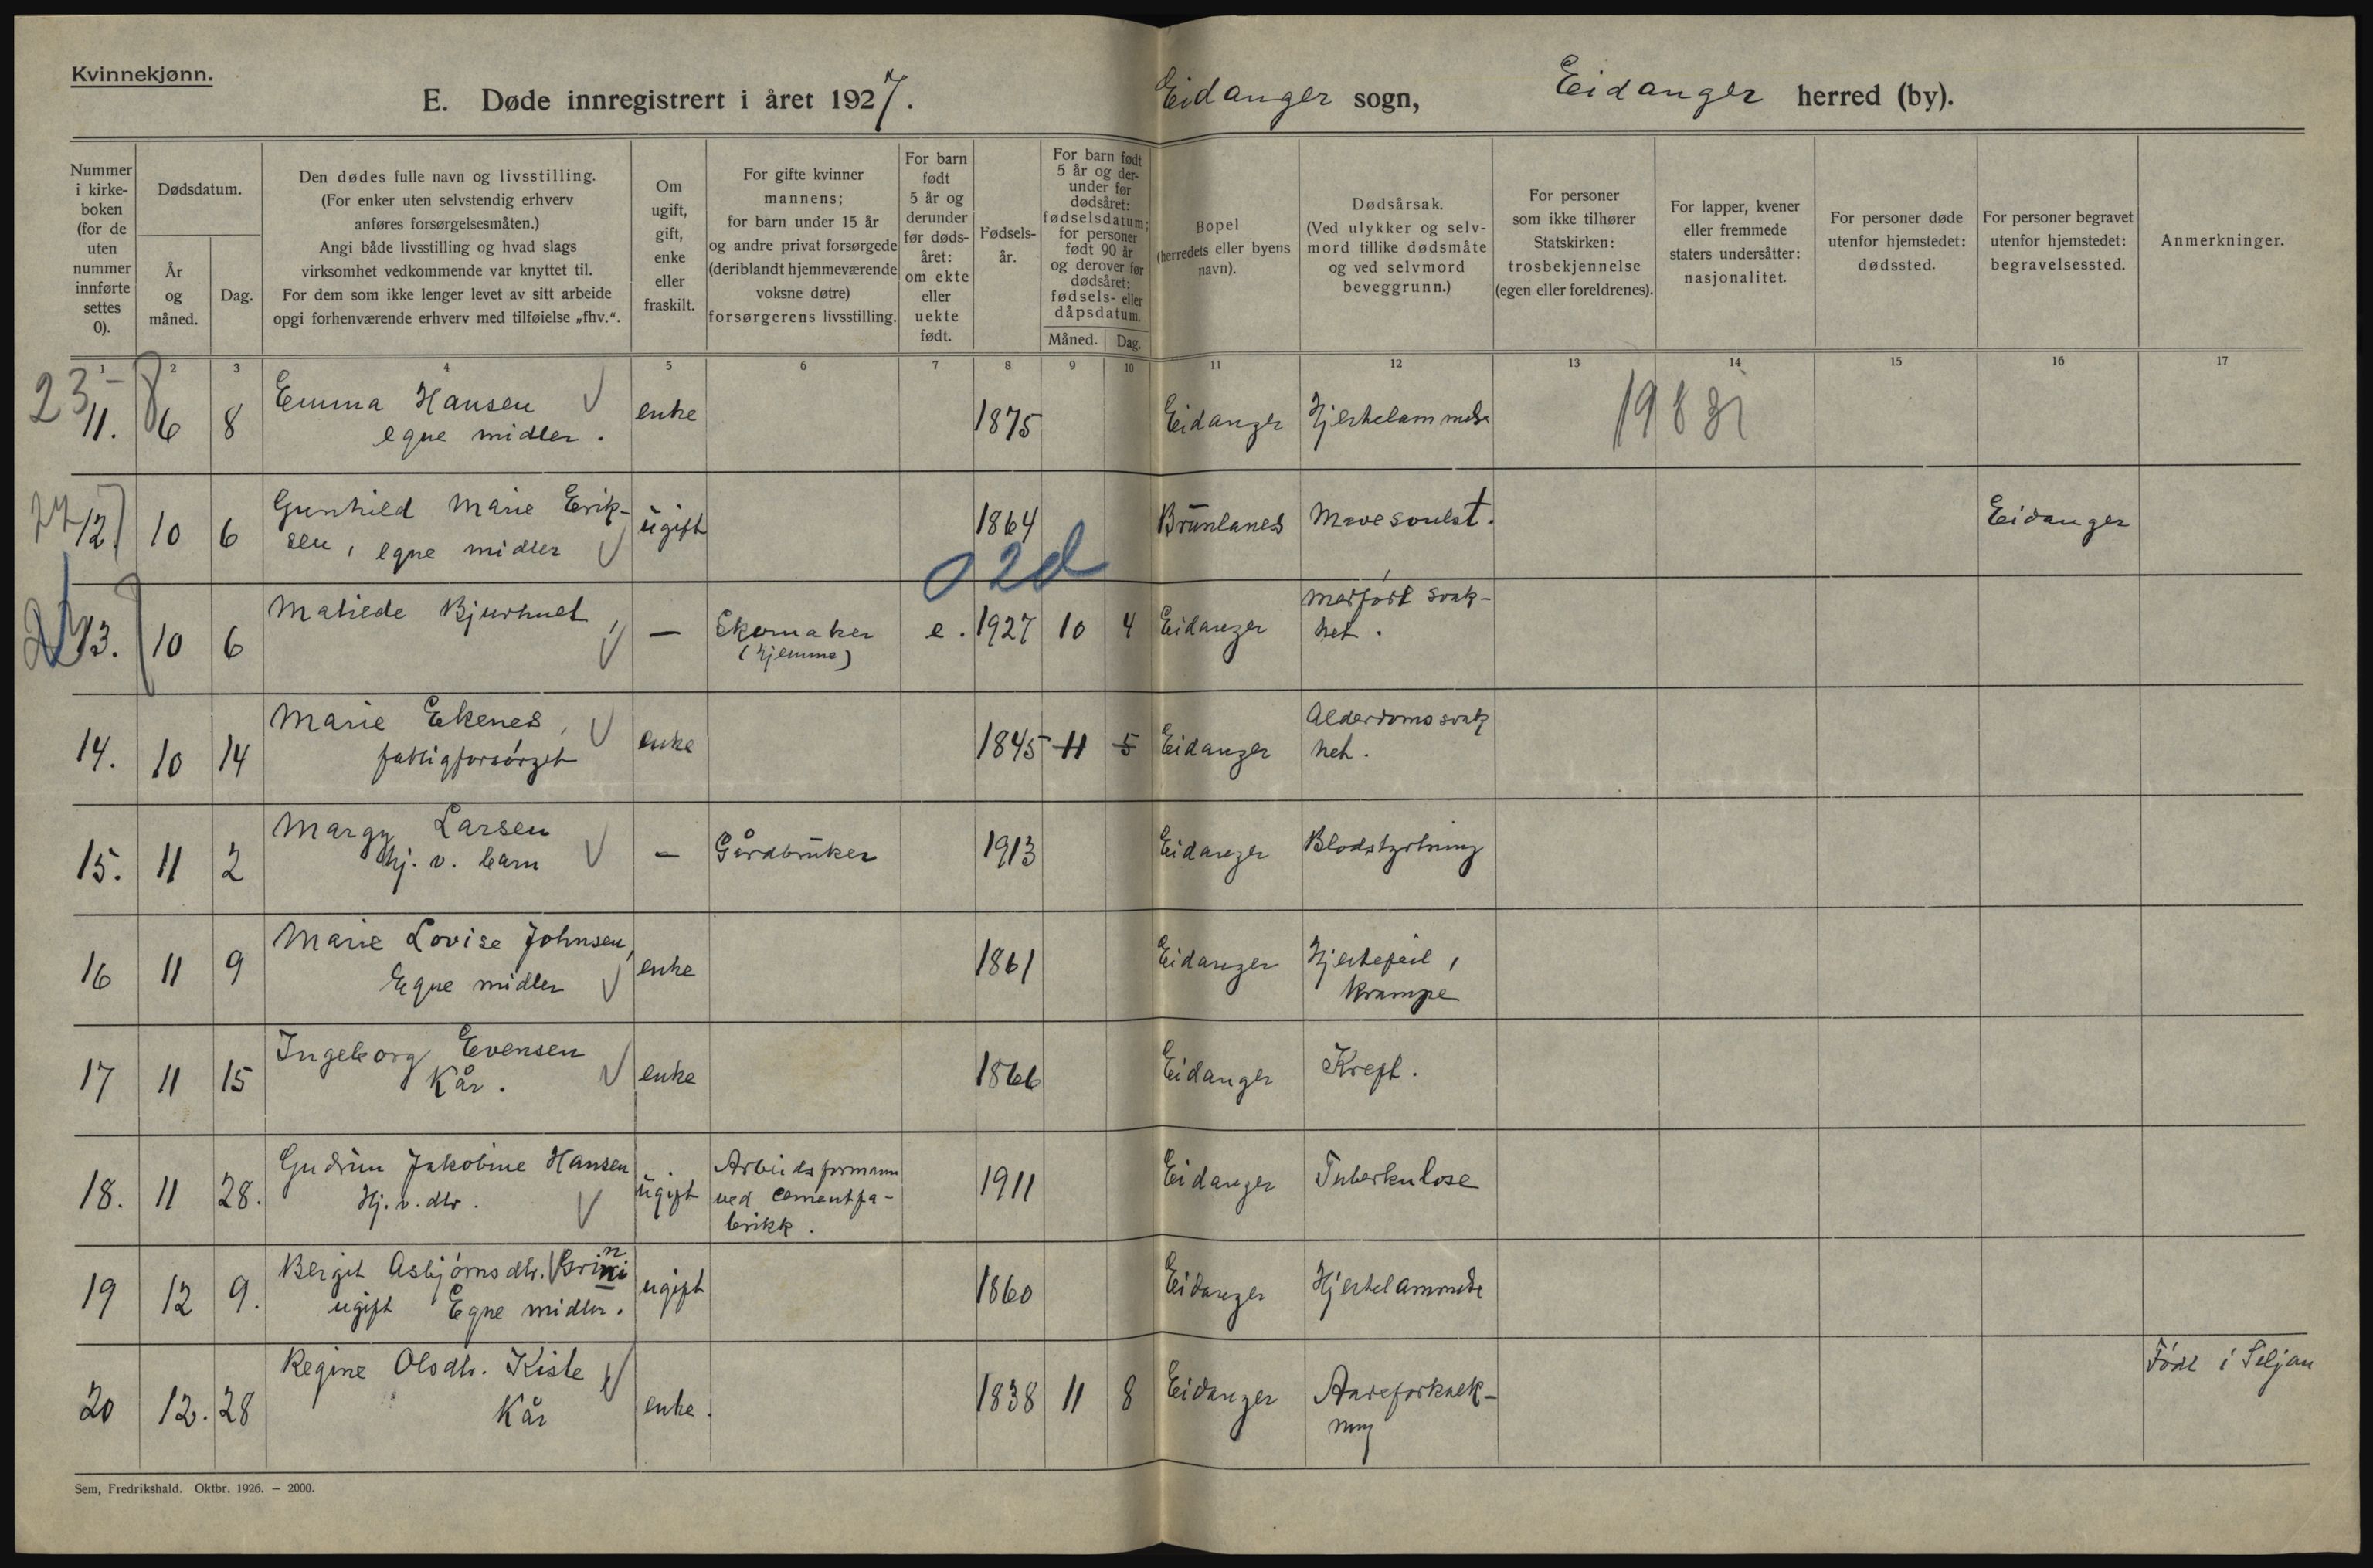 Kvinnekjønn.
E. Døde innregistrert i året 1927.
Eidanger sogn,
Eidanger herred (by).
Nummer i kirke-boken (for de uten nummer innførte settes 0).
Dødsdatum.
År og måned.
Dag.
Den dødes fulle navn og livsstilling.
(For enker uten selvstendig erhverv
anføres forsørgelsesmåten.)
Angi både livsstilling og hvad slags
virksomhet vedkommende var knyttet til.
For dem som ikke lenger levet av sitt arbeide
opgi forhenværende erhverv med tilføielse „fhv.“.
Om ugift, gift, enke eller fraskilt.
For gifte kvinner
mannens;
for barn under 15 år
og andre privat forsørgede
(deriblandt hjemmeværende
voksne døtre)
forsørgerens livsstilling.
For barn født 5 år og derunder før døds-året: om ekte eller uekte født.
Fødsels-år.
For barn født 5 år og der-under før dødsåret: fødselsdatum; for personer født 90 år og derover før dødsåret: fødsels- eller dåpsdatum.
Måned.
Dag.
Bopel
(herredets eller byens
navn).
Dødsårsak.
(Ved ulykker og selv-
mord tillike dødsmåte
og ved selvmord
beveggrunn.)
For personer
som ikke tilhører
Statskirken:
trosbekjennelse
(egen eller foreldrenes).
For lapper, kvener
eller fremmede
staters undersåtter:
nasjonalitet.
For personer døde
utenfor hjemstedet:
dødssted.
For personer begravet
utenfor hjemstedet:
begravelsessted.
Anmerkninger.
1 2 3 4 5 6 7 8 9 10 11 12 13 14 15 16 17
23
11. 6 8 Emma Hansen enke 1875 Eidanger Hjertelammelse
egne midler.
12. 10 6 Gunhild Marie Erik- ugift 1864 Brunlanes Mavesvulst. Eidanger
sen, egne midler
02d
13. 10 6 Matilde Bjurhuet, — Skomaker e. 1927 10 4 Eidanger Medfødt svak-
(hjemme) het.
14. 10 14 Marie Ekenes, enke 1845 11 5 Eidanger Alderdomssvak
fattigforsørget het.
15. 11 2 Margy Larsen — Gårdbruker 1913 Eidanger Blodstyrtning
hj. v. barn
16 11 9 Marie Lovise Johnsen, enke 1861 Eidanger Hjertefeil,
Egne midler krampe
17 11 15 Ingeborg Evensen enke 1866 Eidanger Kreft.
Kår.
18. 11 28. Gudrun Jakobine Hansen ugift Arbeidsformann 1911 Eidanger Tuberkulose
Hj. v. dtr. ved cementfa-
brikk.
19 12 9. Bergit Asbjørnsdtr. Grini ugift 1860 Eidanger Hjertelammelse
n
ugift Egne midler.
20 12. 28 Regine Olsdtr. Kiste enke. 1838 11 8 Eidanger Aareforkalk- Født i Seljan
Kår ning
Sem, Fredrikshald. Oktbr. 1926. – 2000.